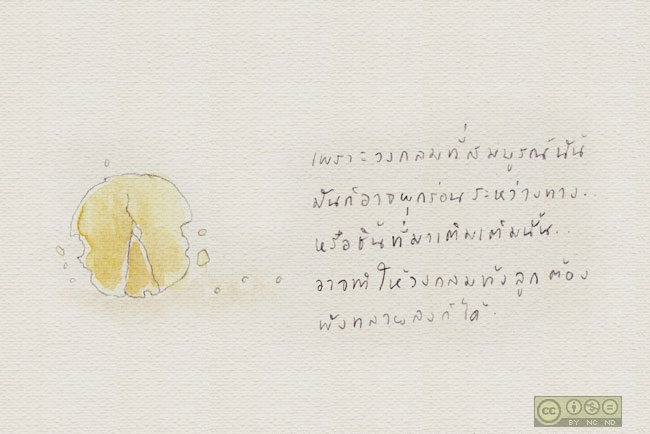 เพราะวงกลมที่สมบูรณ์นั้น
มันก็อาจผุกร่อนระหว่างทาง..
หรือชิ้นที่มาเติมเต็มนั้น..
อาจทำให้วงกลมทั้งลูกต้อง
พังทลายลงก็ได้.
cc
BY NC ND